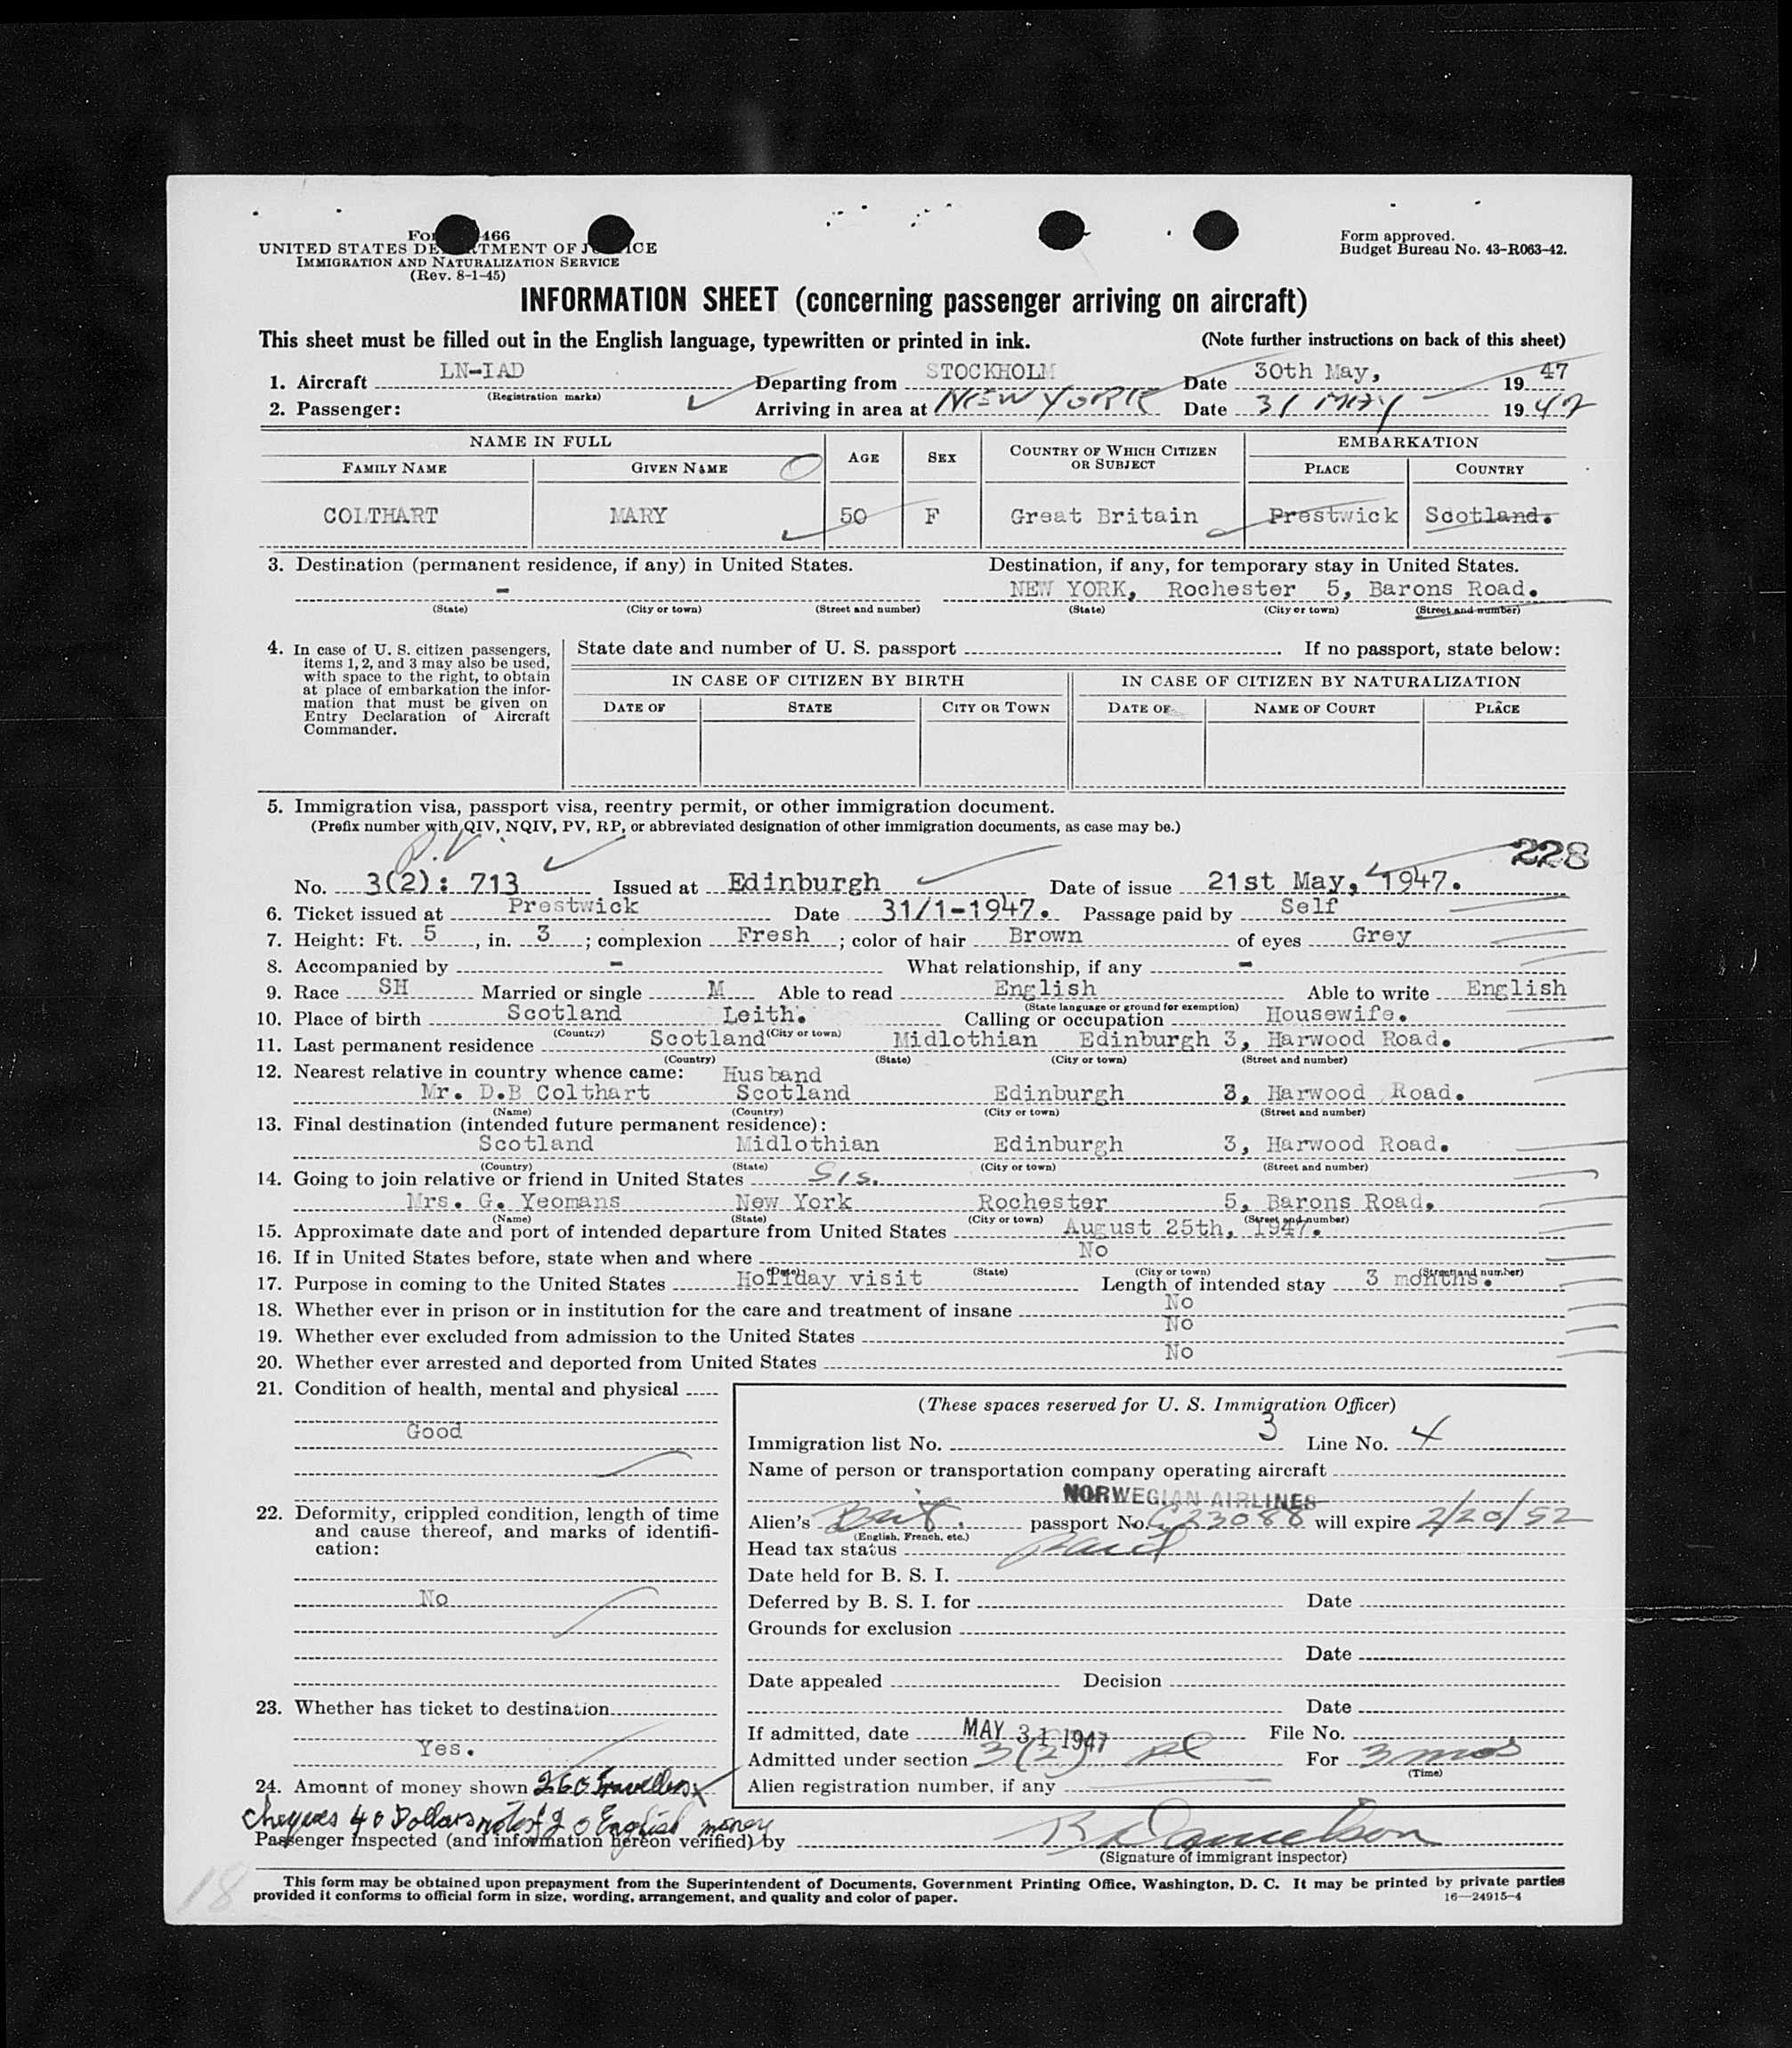 Fo 466
UNITED STATES DE RTMENT OF J ICE
IMMIGRATION AND NATURALIZATION SERVICE
(Rev. 8-1-45)
Form approved.
Budget Bureau No. 43-R063-42.
INFORMATION SHEET (concerning passenger arriving on aircraft)
This sheet must be filled out in the English language, typewritten or printed in ink. (Note further instructions on back of this sheet)
1. Aircraft LN-IAD Departing from STOCKHOLM Date 30th May, 19 47
(Registration marks)
2. Passenger: Arriving in area at NEW YORK Date 31 MAY 19 47
NAME IN FULL AGE SEX COUNTRY OF WHICH CITIZEN OR SUBJECT EMBARKATION
FAMILY NAME GIVEN NAME PLACE COUNTRY
COLTHART MARY 50 F Great Britain Prestwick Scotland.
3. Destination (permanent residence, if any) in United States. Destination, if any, for temporary stay in United States.
- NEW YORK, Rochester 5, Barons Road.
(State) (City or town) (Street and number) (State) (City or town) (Street and number)
4. In case of U. S. citizen passengers, items 1, 2, and 3 may also be used, with space to the right, to obtain at place of embarkation the information that must be given on Entry Declaration of Aircraft Commander.
State date and number of U. S. passport . If no passport, state below:
IN CASE OF CITIZEN BY BIRTH IN CASE OF CITIZEN BY NATURALIZATION
DATE OF STATE CITY OR TOWN DATE OF NAME OF COURT PLACE
5. Immigration visa, passport visa, reentry permit, or other immigration document.
(Prefix number with QIV, NQIV, PV, RP, or abbreviated designation of other immigration documents, as case may be.)
P.V.
228
No. 3(2): 713 Issued at Edinburgh Date of issue 21st May, 1947.
6. Ticket issued at Prestwick Date 31/1-1947. Passage paid by Self
7. Height: Ft. 5, in. 3; complexion Fresh; color of hair Brown of eyes Grey
8. Accompanied by - What relationship, if any -
9. Race SH Married or single M Able to read English Able to write English
(State language or ground for exemption)
10. Place of birth Scotland Leith. Calling or occupation Housewife.
(Country) (City or town)
11. Last permanent residence Scotland Midlothian Edinburgh 3, Harwood Road.
(Country) (State) (City or town) (Street and number)
12. Nearest relative in country whence came: Husband
Mr. D.B Colthart Scotland Edinburgh 3, Harwood Road.
(Name) (Country) (City or town) (Street and number)
13. Final destination (intended future permanent residence):
Scotland Midlothian Edinburgh 3, Harwood Road.
(Country) (State) (City or town) (Street and number)
14. Going to join relative or friend in United States Sis.
Mrs. G. Yeomans New York Rochester 5, Barons Road.
(Name) (State) (City or town) (Street and number)
15. Approximate date and port of intended departure from United States August 25th, 1947.
16. If in United States before, state when and where No
(Date) (State) (City or town) (Street and number)
17. Purpose in coming to the United States Holiday visit Length of intended stay 3 months.
18. Whether ever in prison or in institution for the care and treatment of insane No
19. Whether ever excluded from admission to the United States No
20. Whether ever arrested and deported from United States No
21. Condition of health, mental and physical
Good
22. Deformity, crippled condition, length of time and cause thereof, and marks of identification:
No
23. Whether has ticket to destination
Yes.
24. Amount of money shown 260 Travellers
cheques 40 Dollars notes £20 English money
(These spaces reserved for U. S. Immigration Officer)
Immigration list No. 3 Line No. 4
Name of person or transportation company operating aircraft
NORWEGIAN AIRLINES
Alien's Brit. passport No. C23088 will expire 2/20/52
(English, French, etc.)
Head tax status Paid
Date held for B. S. I.
Deferred by B. S. I. for Date
Grounds for exclusion
Date
Date appealed Decision
Date
If admitted, date MAY 31 1947 File No.
Admitted under section 3(2) For 3 mos
(Time)
Alien registration number, if any
Passenger inspected (and information hereon verified) by
(Signature of immigrant inspector)
This form may be obtained upon prepayment from the Superintendent of Documents, Government Printing Office, Washington, D. C. It may be printed by private parties
provided it conforms to official form in size, wording, arrangement, and quality and color of paper. 16—24915-4
18